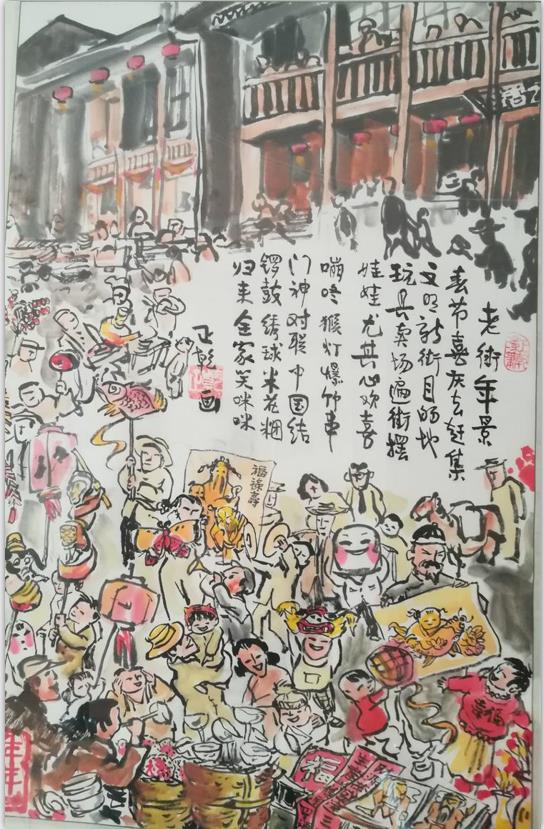 老街年景
春节喜庆去赶集
文明新街目的地
玩具卖场遍街摆
娃娃尤其心欢喜
嘣咚猴灯爆竹
门神对联中国结
锣鼓绣球米花
归来全家笑咪咪
画
福禄寿
福